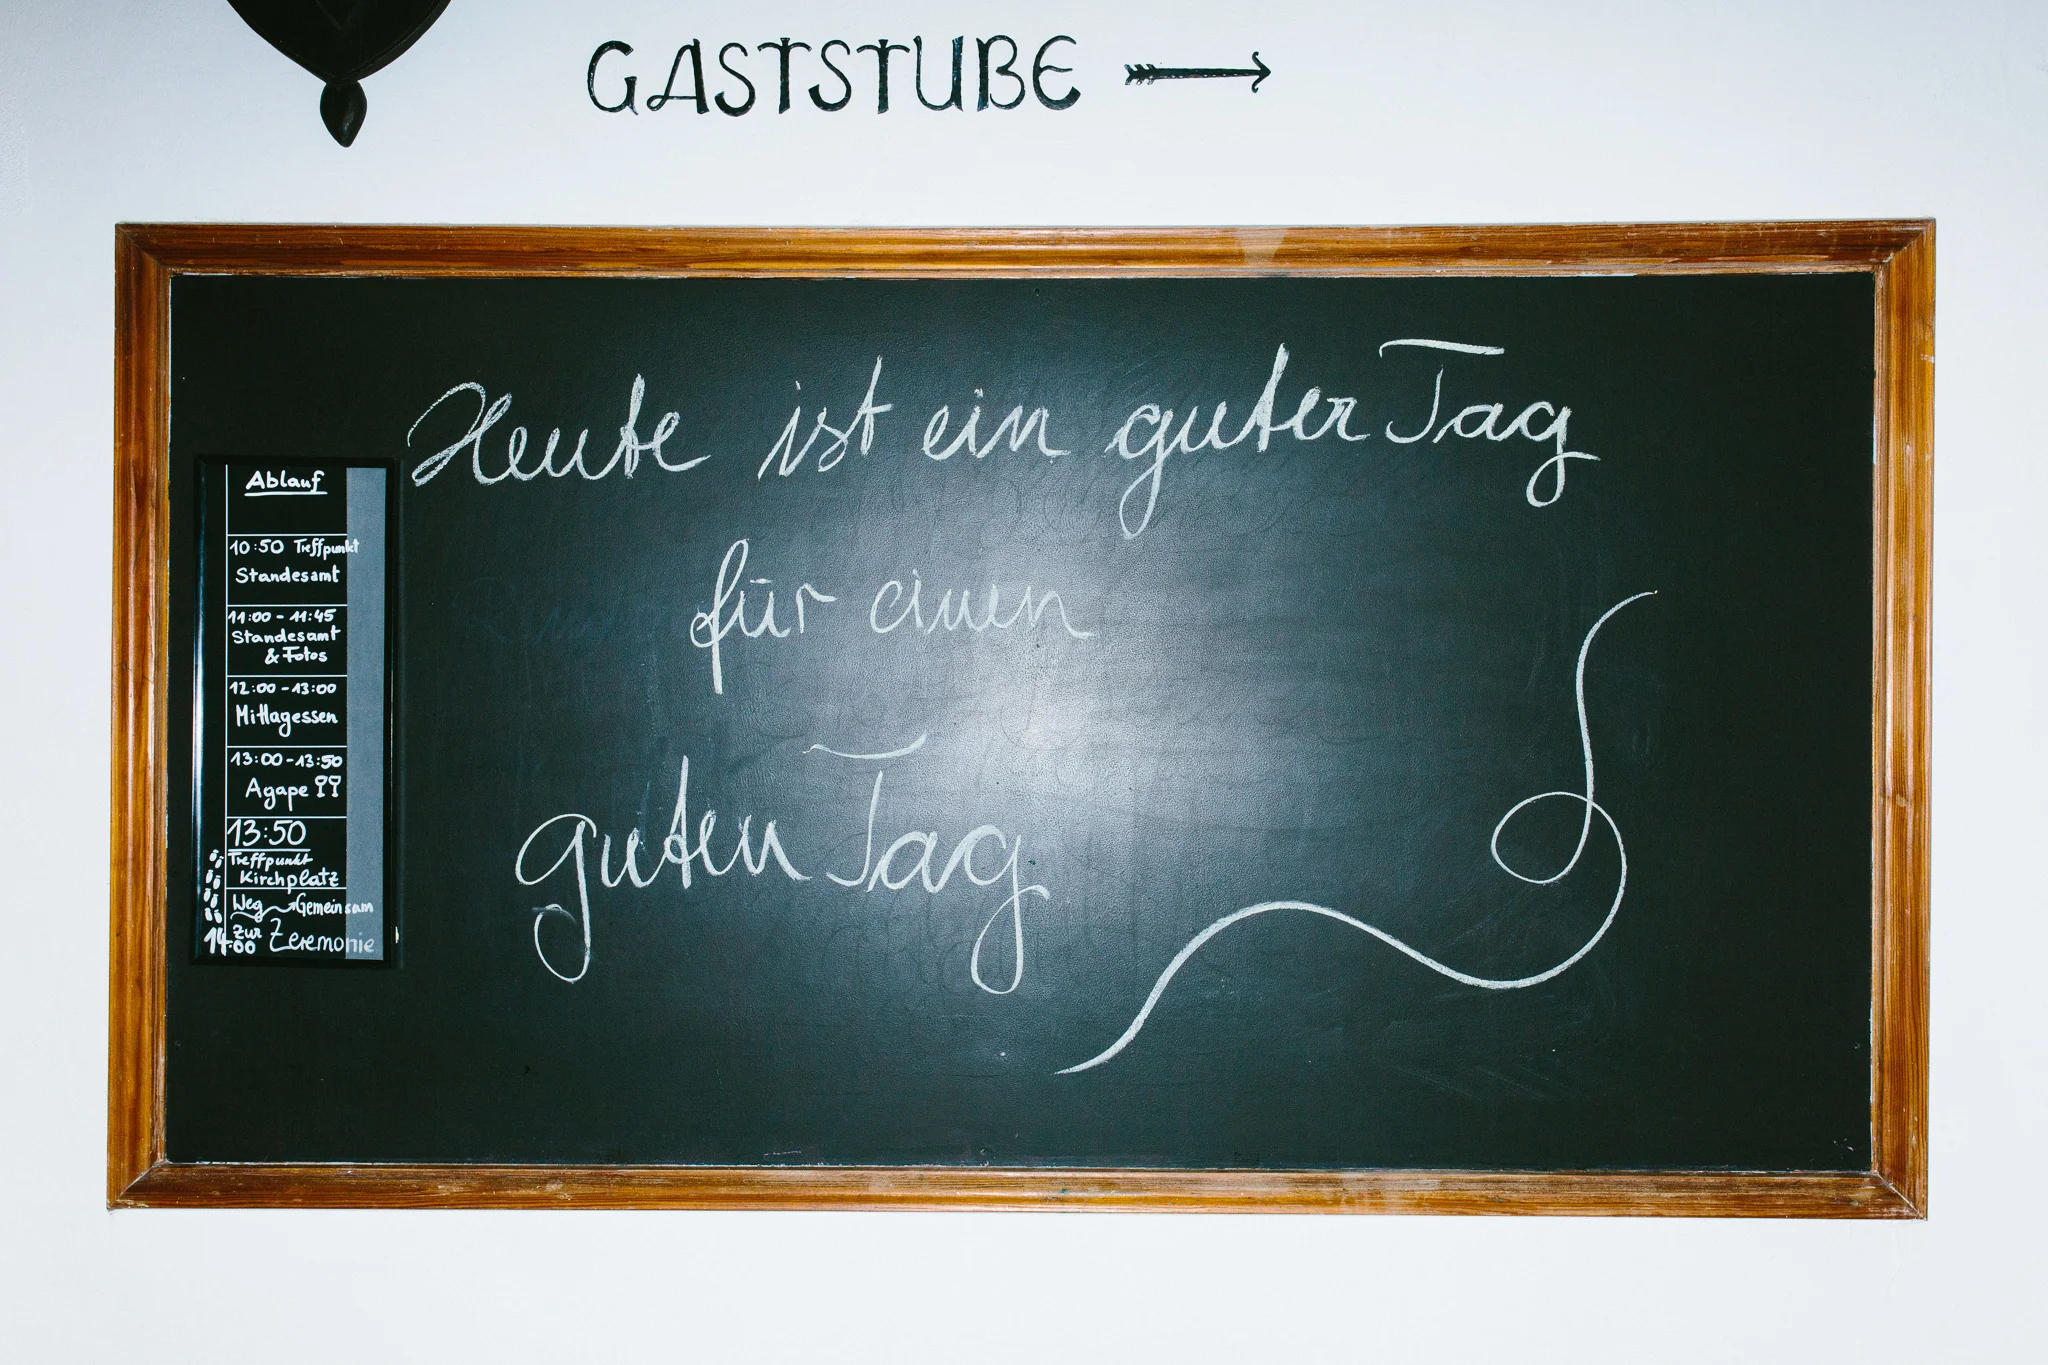 GASTSTUBE
Heute ist ein guter Tag
für einen
guten Tag
Ablauf
10:50 Treffpunkt
Standesamt
11:00 - 11:45
Standesamt
& Fotos
12:00 - 13:00
Mittagessen
13:00 - 13:50
Agape
13:50
Treffpunkt
Kirchplatz
Weg Gemeinsam
14:00 zur Zeremonie